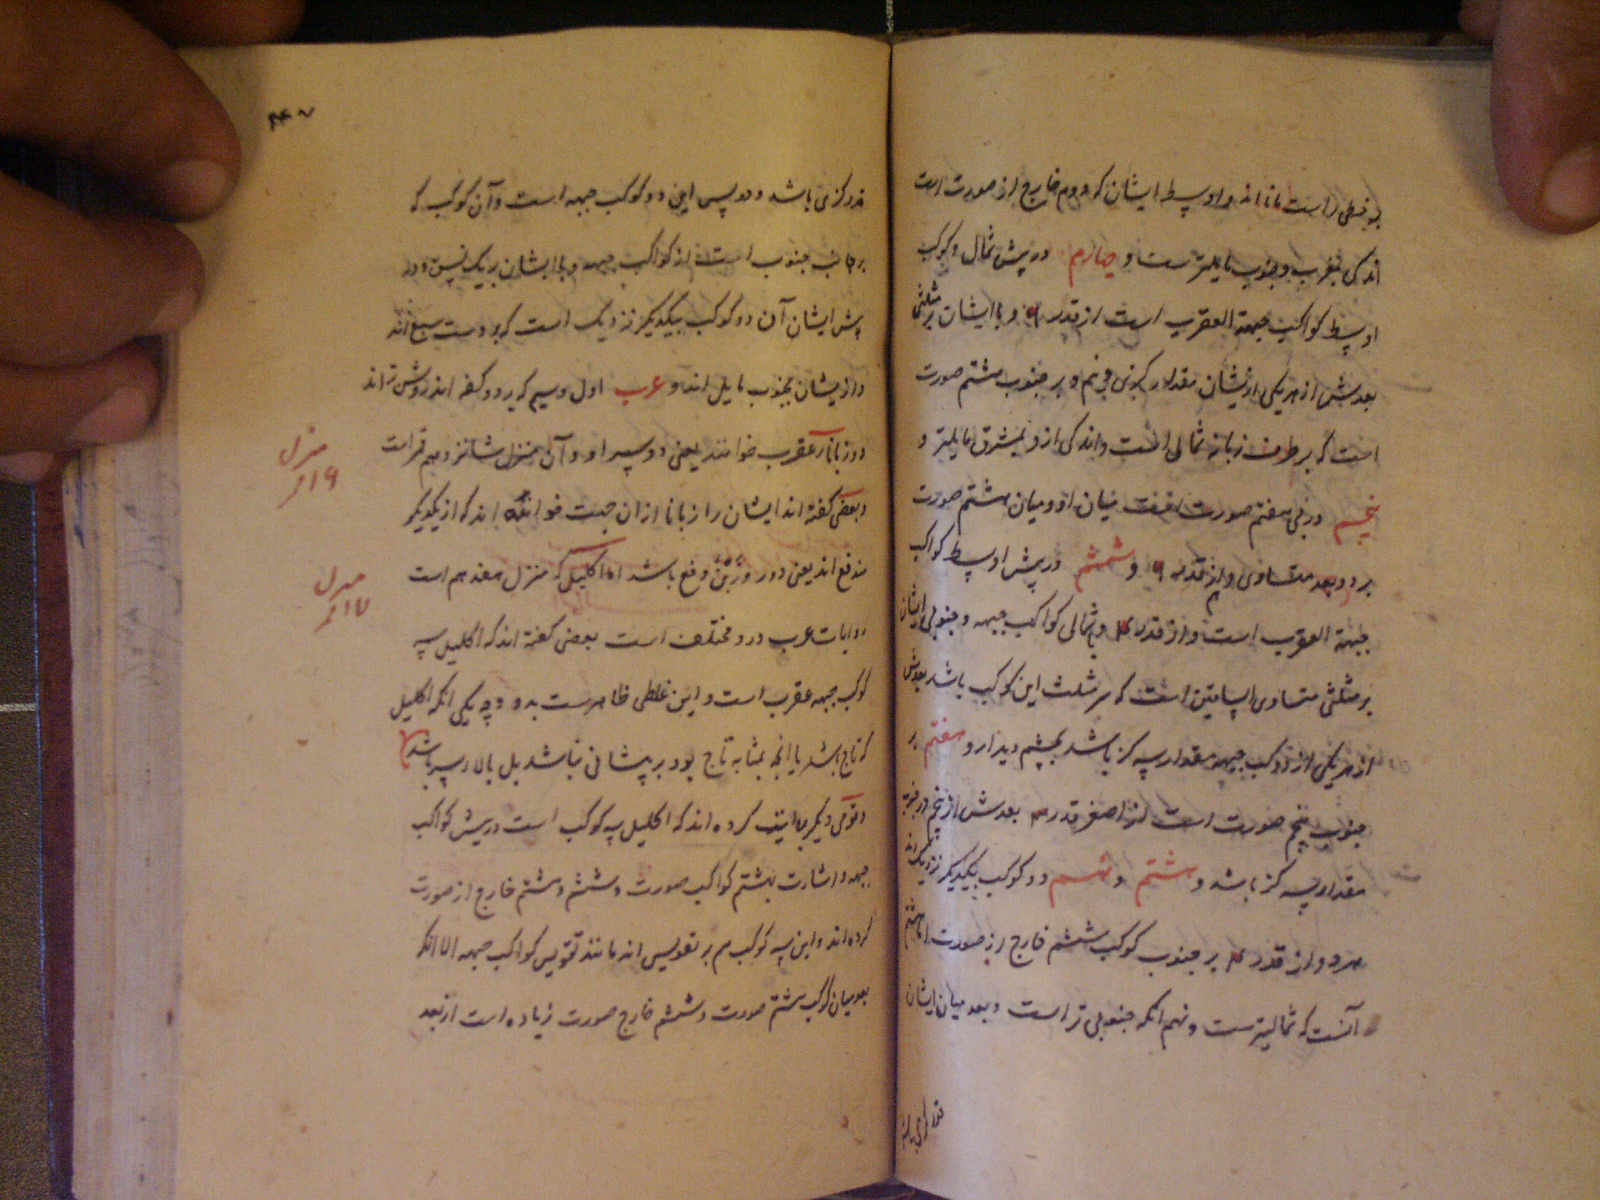 بر خطی راست مانند اند و اوسط ایشان که دوم خارج از صورت است
اندکی بمغرب و جنوب مایلترست و چهارم در پیش شمال و کوکب
اوسط کواکب جبهة العقرب است از قدر ۶ و با ایشان بر مثلثی
بعدش از هر یکی ازیشان مقدار کزی و نیم و بر جنوب هشتم صورت
است که بر طرف زبانه شمالی است و اندکی ازو بمشرق مایلتر و
پنجم در پی هفتم صورت افتد میان او و میان هشتم صورت
بر دو بعد متساوی و از قدر ۶ و ششم در پیش اوسط کواکب
جبهة العقرب است و از قدر ۴ و با شمالی کواکب جبهه و جنوبی ایشان
بر مثلثی متساوی الساقین است که سر مثلث این کوکب باشد بعدش
از هر یکی از دو کوکب جبهه مقدار سه کز باشد بچشم دیدار و هفتم بر
جنوب پنجم صورت است از اصغر قدر ۴ بعدش از پنجم در جنوب
مقدار سه کز باشد و هشتم و نهم دو کوکب بیکدیکر نزدیک اند
هر دو از قدر ۴ بر جنوب کوکب ششم خارج از صورت اما هشتم
آنست که شمالیترست و نهم انکه جنوبی تر است و بعد میان ایشان
قدر کزی باشد
قدر کزی باشد و در پس این دو کوکب جبهه است و آن کوکب که
بر جانب جنوب است از کواکب جبهه و با ایشان بر یک نسق و در
پیش ایشان آن دو کوکب بیکدیکر نزدیک است که بر دست سبع اند
و ازیشان بجنوب مایل اند و عرب اول و سیم که بر دو کفه اند روشن تر اند
دو زبانا عقرب خوانند یعنی دو سر او و آن منزل شانزدهم قمر است
منزل ۱۶ قمر
و بعضی گفته اند ایشان را زبانا از ان جهت خوانده اند که از یکدیکر
مندفع اند یعنی دور و زبن دفع باشد اما اکلیل که منزل هفدهم است
منزل ۱۷ قمر
روایات عرب درو مختلف است بعضی گفته اند که اکلیل سه
کوکب جبهه عقرب است و این غلطی ظاهرست بدو وجه یکی انکه اکلیل
که تاج باشد یا انچه بمثابه تاج بود بر پیشانی نباشد بل بالای سر باشد
و قومی دیکر روایت کرده اند که اکلیل سه کوکب است در پیش کواکب
جبهه و اشارت بهشتم کواکب صورت و ششم و هشتم خارج از صورت
کرده اند و این سه کوکب هم بر تقویس اند مانند تقویس کواکب جبهه الا انکه
بعد میان کوکب هشتم صورت و ششم خارج صورت زیاده است از بعد